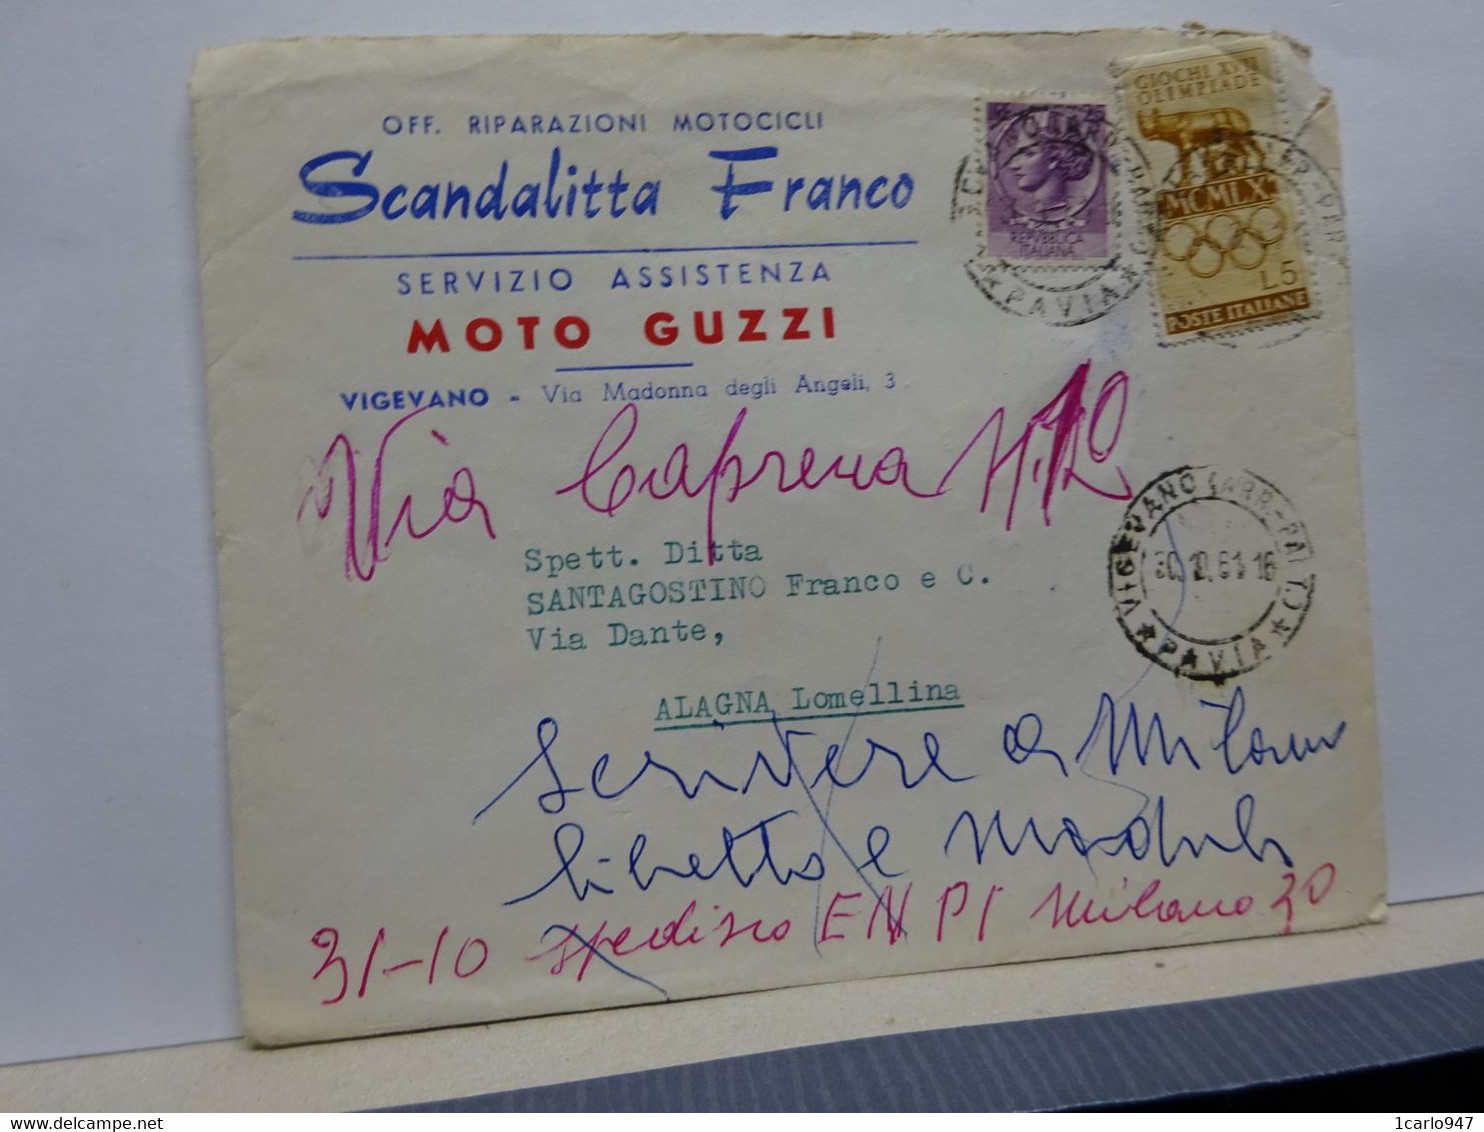 OFF. RIPARAZIONI MOTOCICLI
Scandalitta Franco
SERVIZIO ASSISTENZA
MOTO GUZZI
VIGEVANO - Via Madonna degli Angeli, 3
REPVBBLICA
ITALIANA
PAVIA
GIOCHI XVII
OLIMPIADE
MCMLX
L5
POSTE ITALIANE
Via
Spett. Ditta
SANTAGOSTINO Franco e C.
Via Dante,
ALAGNA Lomellina
VIGEVANO (ARR.-PART.)
61 16
* PAVIA *
Scrivere a Milano
libretto e moduli
31-10 spedisco ENPI Milano
1carlo947
delcampe.net